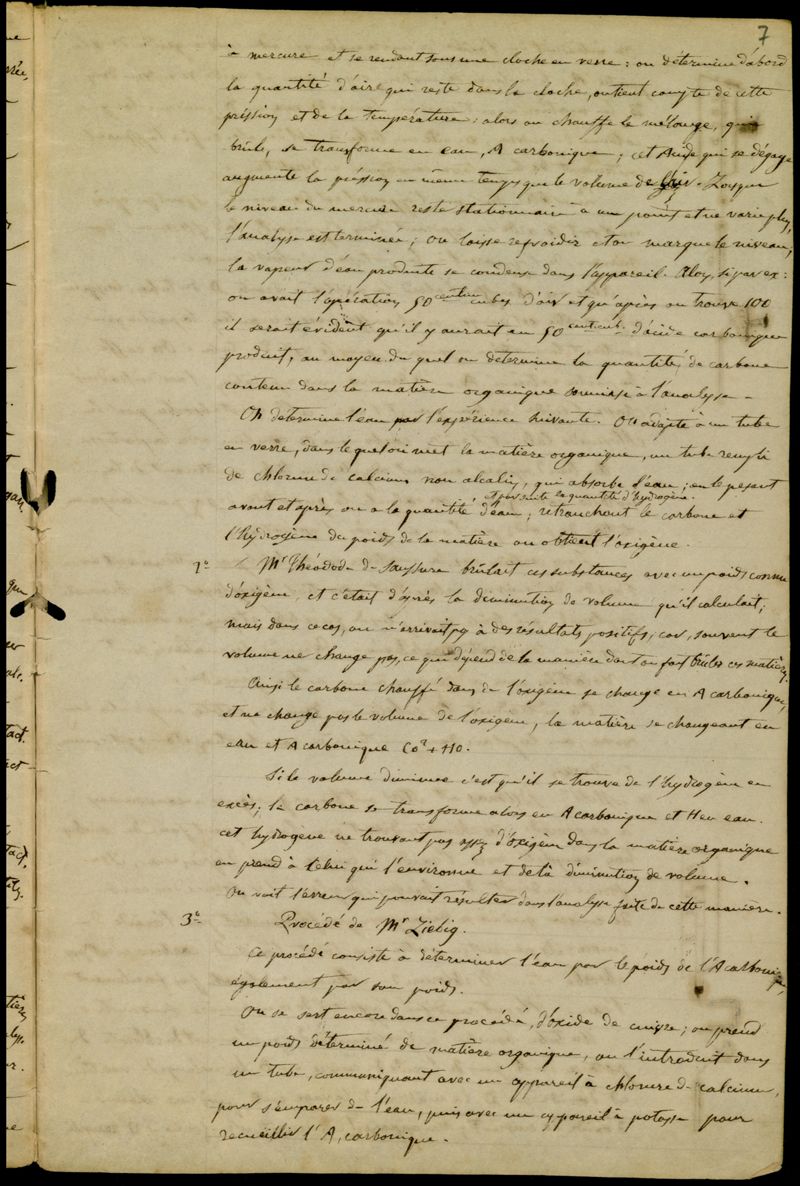 7
à mercure et se rendant sous une cloche en verre : on détermine d'abord
la quantité d'air qui reste dans la cloche, on tient compte de cette
pression et de la température ; alors on chauffe le mélange, qui
brûle, se transforme en eau, A carbonique ; cet Acide qui se dégage
augmente la pression en même temps que le volume de l'air. Lorsque
le niveau du mercure reste stationnaire à un point et ne varie plus,
l'analyse est terminée ; on laisse refroidir et on marque le niveau ;
la vapeur d'eau produite se condense dans l'appareil. Alors, si par ex :
on avait l'opération, 50 centim cubes d'air et qu'après on trouve 100
il serait évident qu'il y aurait eu 50 cent. cub. d'acide carbonique
produit, au moyen du quel on détermine la quantité de carbone
contenu dans la matière organique soumise à l'analyse -
On détermine l'eau par l'expérience suivante. On adapte à un tube
en verre, dans lequel on met la matière organique, un tube rempli
de chlorure de calcium non alcalin, qui absorbe l'eau ; en le pesant
et par suite la quantité d'hydrogène.
avant et après on a la quantité d'eau ; retranchant le carbone et
l'hydrogène du poids de la matière on obtient l'oxigène.
Mr Théodode de Saussure brûlait ces substances avec un poids connu
d'oxigène, et c'était d'après la diminution de volume qu'il calculait ;
mais dans ce cas, on n'arrivait pas à des résultats positifs, car, souvent le
volume ne change pas, ce qui dépend de la manière dont on fait brûler ces matières.
Ainsi le carbone chauffé dans de l'oxigène se change en A carbonique,
et ne change pas le volume de l'oxigène, la matière se changeant en
eau et A carbonique Co² + HO.
Si le volume diminue c'est qu'il se trouve de l'hydrogène en
excès ; le carbone se transforme alors en A carbonique et H en eau.
cet hydrogène ne trouvant pas assez d'oxigène dans la matière organique
en prend à celui qui l'environne et de là diminution de volume.
On voit l'erreur qui pouvait résulter dans l'analyse faite de cette manière.
3° Procédé de Mr Liebig.
Ce procédé consiste à déterminer l'eau par le poids de l'A carbonique,
également par son poids.
On se sert encore dans ce procédé, d'oxide de cuivre ; on prend
un poids déterminé de matière organique, on l'introduit dans
un tube, communiquant avec un appareil à chlorure de calcium,
pour s'emparer de l'eau, puis avec un appareil à potasse pour
recueillir l'A, carbonique.